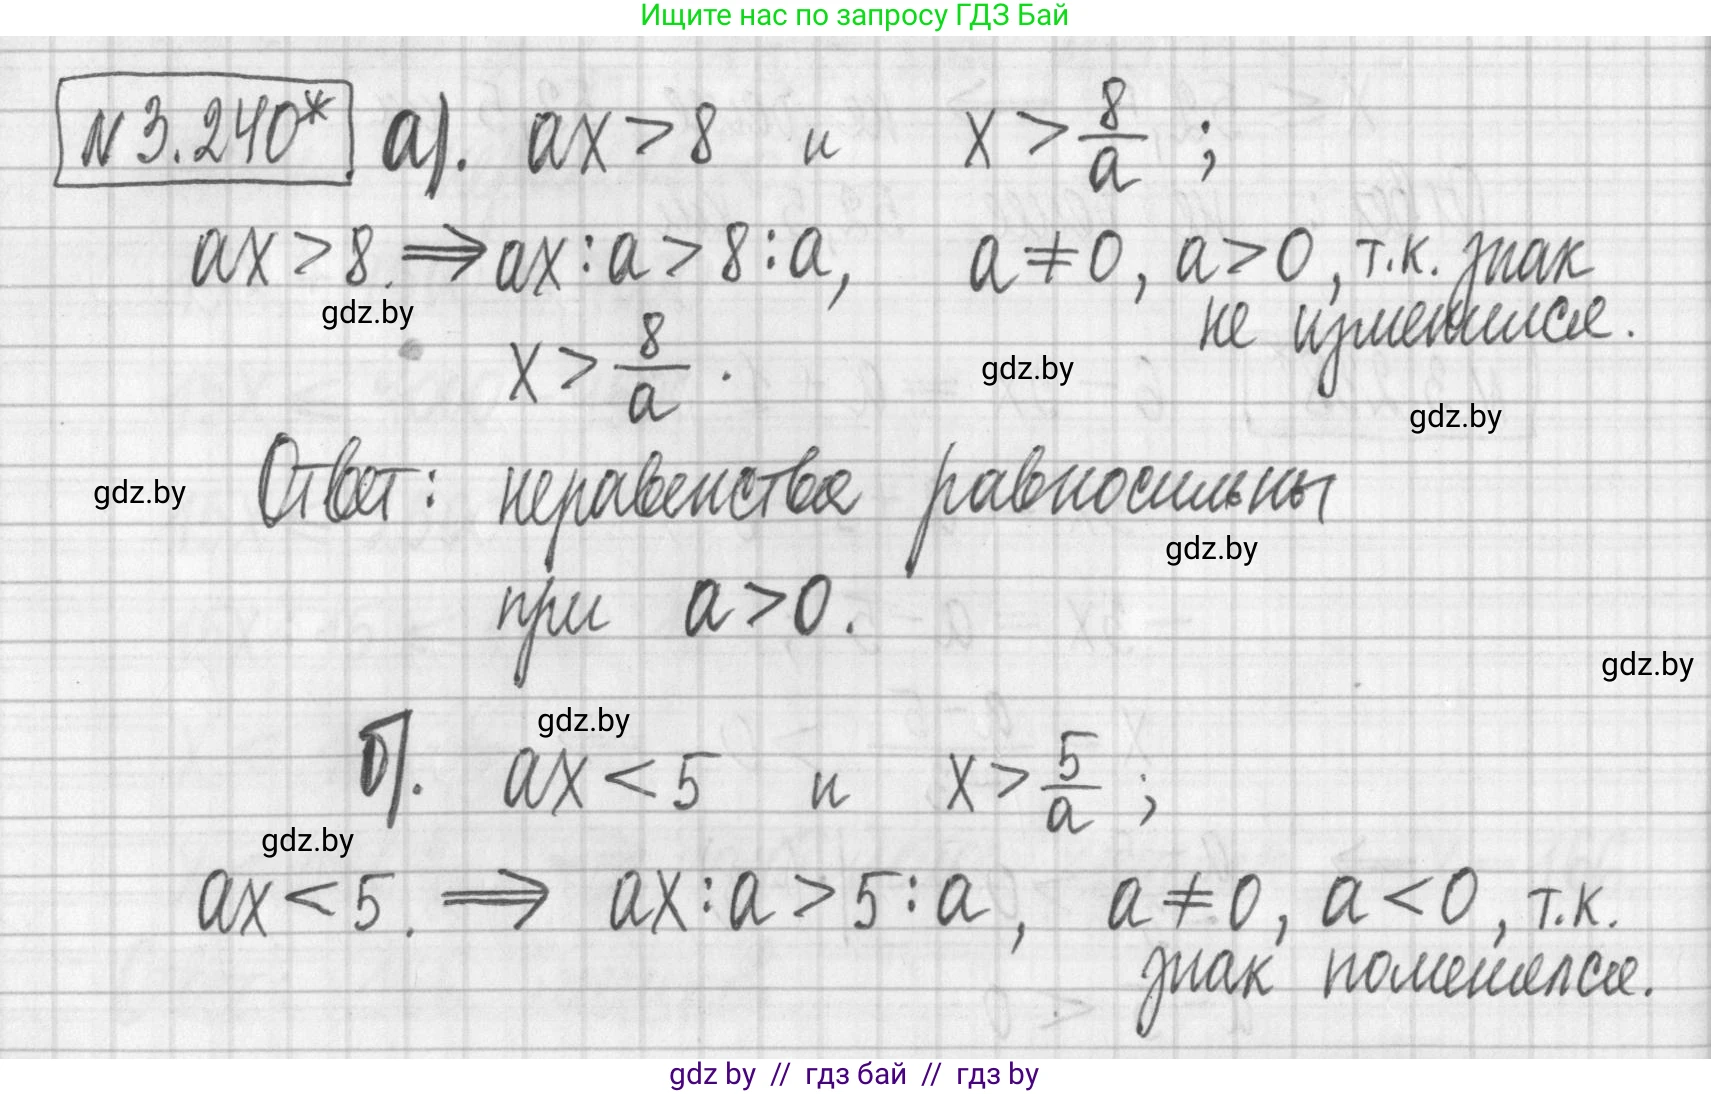 Ищите нас по запросу ГДЗ Бай
N 3.240* а). ax > 8 и x > 8/a ;
ax > 8. ⇒ ax : a > 8 : a, a ≠ 0, a > 0, т.к. знак
не изменился.
gdz.by
x > 8/a .
gdz.by
gdz.by
Ответ: неравенства равносильны
gdz.by
gdz.by
при a > 0.
gdz.by
gdz.by
б). ax < 5 и x > 5/a ;
gdz.by
ax < 5. ⇒ ax : a > 5 : a, a ≠ 0, a < 0, т.к.
знак поменялся.
gdz by // гдз бай // гдз by